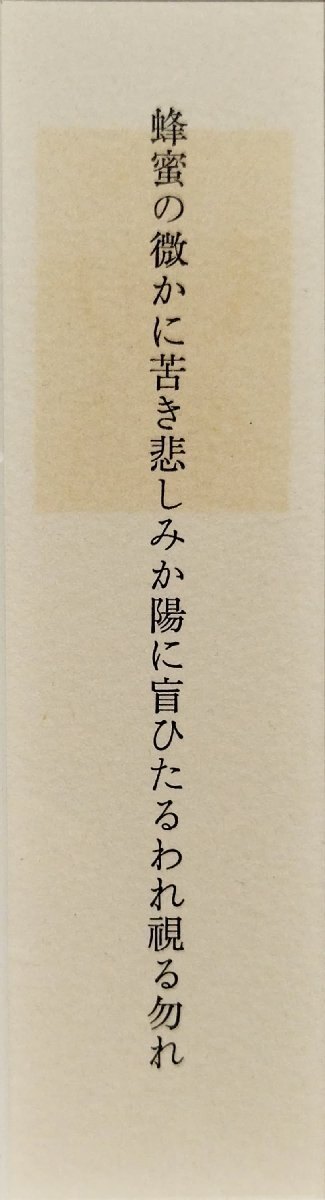 蜂蜜の微かに苦き悲しみか陽に盲ひたるわれ視る勿れ